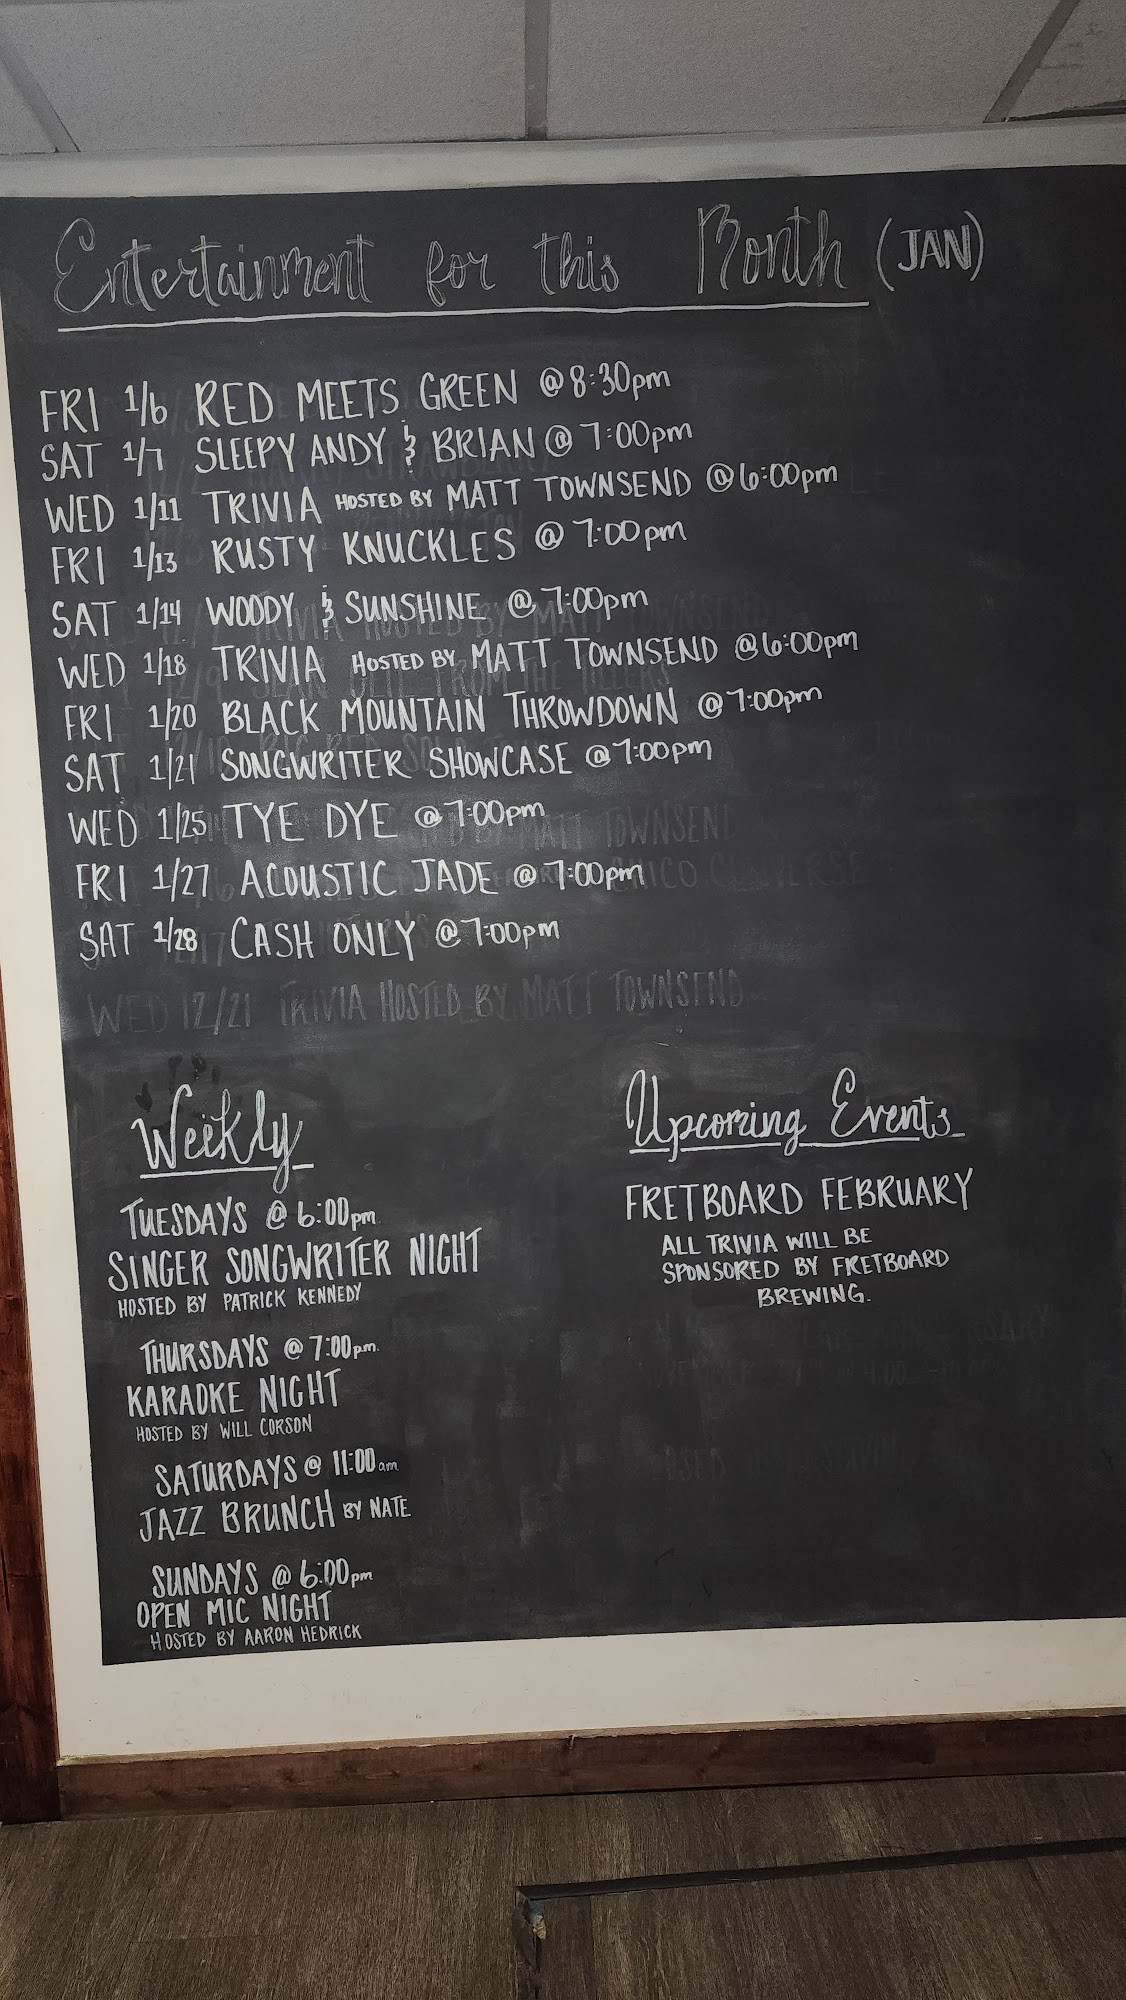 Entertainment for this Month (JAN)
FRI 1/6 RED MEETS GREEN @ 8:30pm
SAT 1/7 SLEEPY ANDY & BRIAN @ 7:00pm
WED 1/11 TRIVIA HOSTED BY MATT TOWNSEND @ 6:00pm
FRI 1/13 RUSTY KNUCKLES @ 7:00pm
SAT 1/14 WOODY & SUNSHINE @ 7:00pm
WED 1/18 TRIVIA HOSTED BY MATT TOWNSEND @ 6:00pm
FRI 1/20 BLACK MOUNTAIN THROWDOWN @ 7:00pm
SAT 1/21 SONGWRITER SHOWCASE @ 7:00pm
WED 1/25 TYE DYE @ 7:00pm
FRI 1/27 ACOUSTIC JADE @ 7:00pm
SAT 1/28 CASH ONLY @ 7:00pm
WED 12/21 TRIVIA HOSTED BY MATT TOWNSEND
Weekly
TUESDAYS @ 6:00pm
SINGER SONGWRITER NIGHT
HOSTED BY PATRICK KENNEDY
THURSDAYS @ 7:00pm.
KARAOKE NIGHT
HOSTED BY WILL CORSON
SATURDAYS @ 11:00am
JAZZ BRUNCH BY NATE
SUNDAYS @ 6:00pm
OPEN MIC NIGHT
HOSTED BY AARON HEDRICK
Upcoming Events
FRETBOARD FEBRUARY
ALL TRIVIA WILL BE
SPONSORED BY FRETBOARD
BREWING.